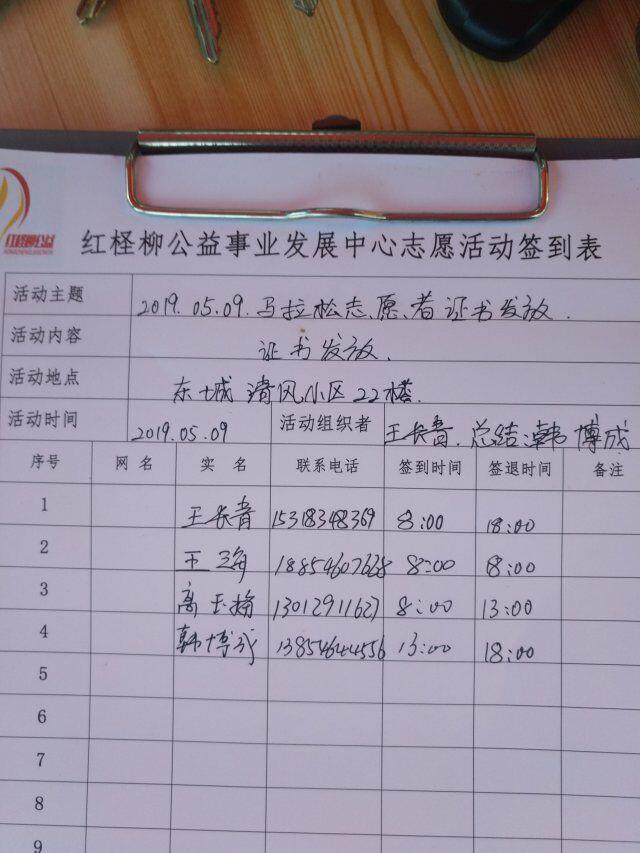 红柽柳公益
红柽柳公益事业发展中心志愿活动签到表
活动主题 2019.05.09.马拉松志愿者证书发放.
活动内容 证书发放.
活动地点 东城清风小区22楼.
活动时间 2019.05.09 活动组织者 王长青.总结:韩博成
序号 网名 实名 联系电话 签到时间 签退时间 备注
1 王长青 15318348369 8:00 18:00
2 王 18854607628 8:00 8:00
3 高玉梅 13012911627 8:00 13:00
4 韩博成 13854644556 13:00 18:00
5
6
7
8
9